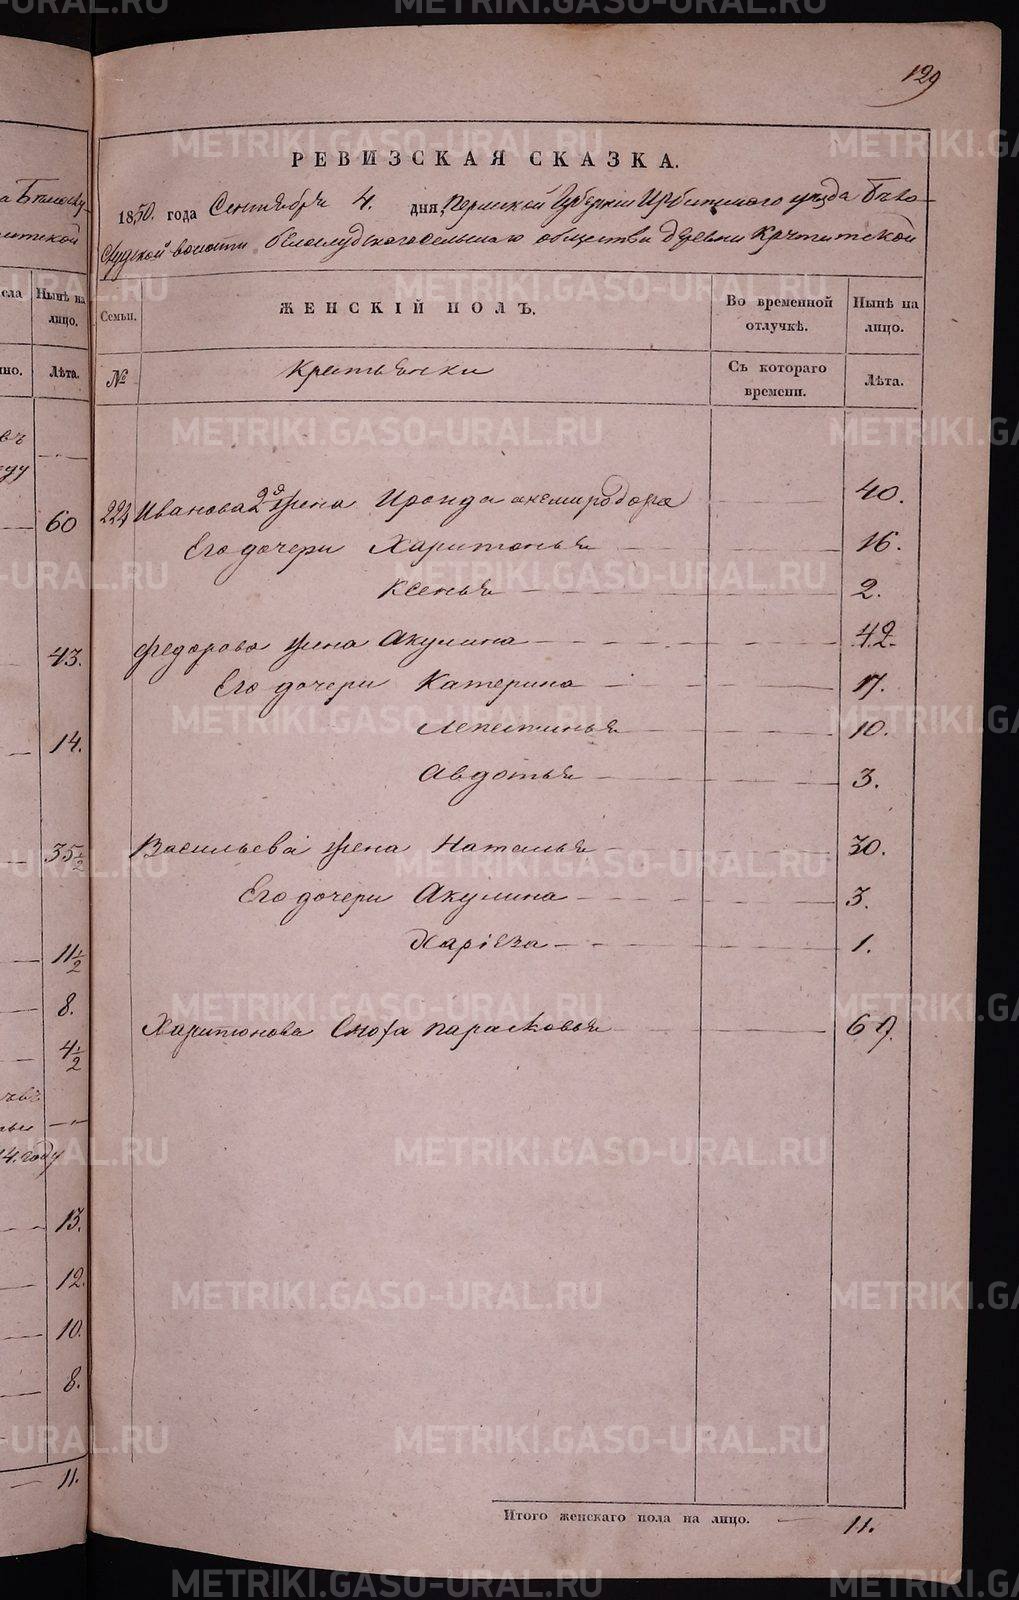 129
РЕВИЗСКАЯ СКАЗКА.
1850. года Сентября 4. дня, Пермской Губернии Ирбитскаго уезда Бело-
слудской волости белослудскаго сельскаго общества деревни
Семьи. ЖЕНСКІЙ ПОЛЪ. Во временной отлучкѣ. Нынѣ на лицо.
№ Крестьянки Съ котораго времени. Лѣта.
224 Иванова 2я жена 40.
Его дочери Харитонья 16.
Ксенья 2.
Федорова жена Акулина 42.
Его дочери Катерина 17.
Лепестинья 10.
Авдотья 3.
Васильева жена Наталья 30.
Его дочери Акулина 3.
1.
Харитонова Сноха парасковья 69.
Итого женскаго пола на лицо. 11.
Нынѣ на лицо.
Лѣта.
60
43.
14.
35½
11½
8.
4½
4. году
13.
12.
10.
8.
11.
METRIKI.GASO-URAL.RU